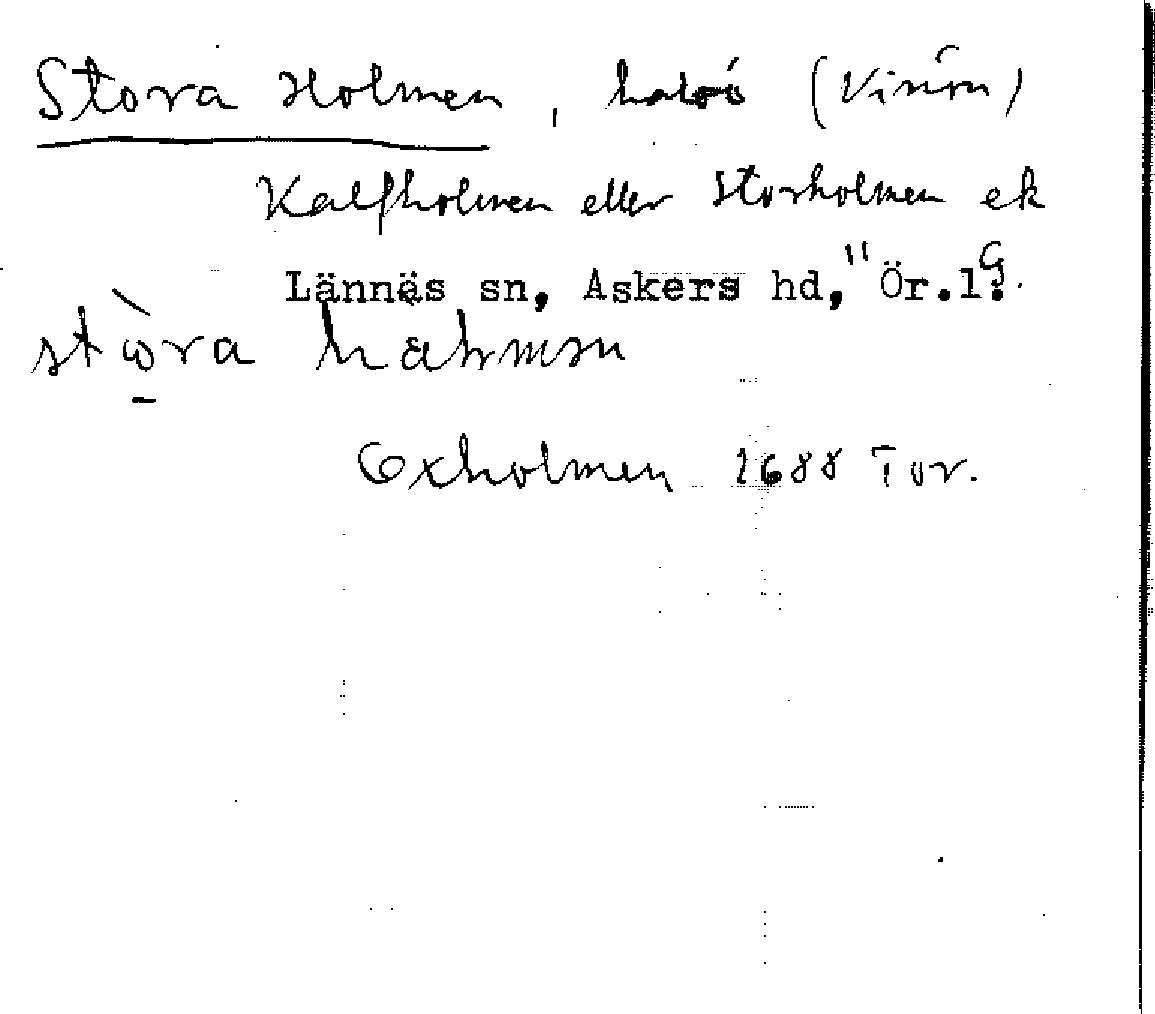 Stora Holmen, halvö (Vinön)
Kalfholmen eller Storholmen ek
Lännäs sn, Askers hd, Ör.l.
stòra
Oxholmen 1688 Tor.